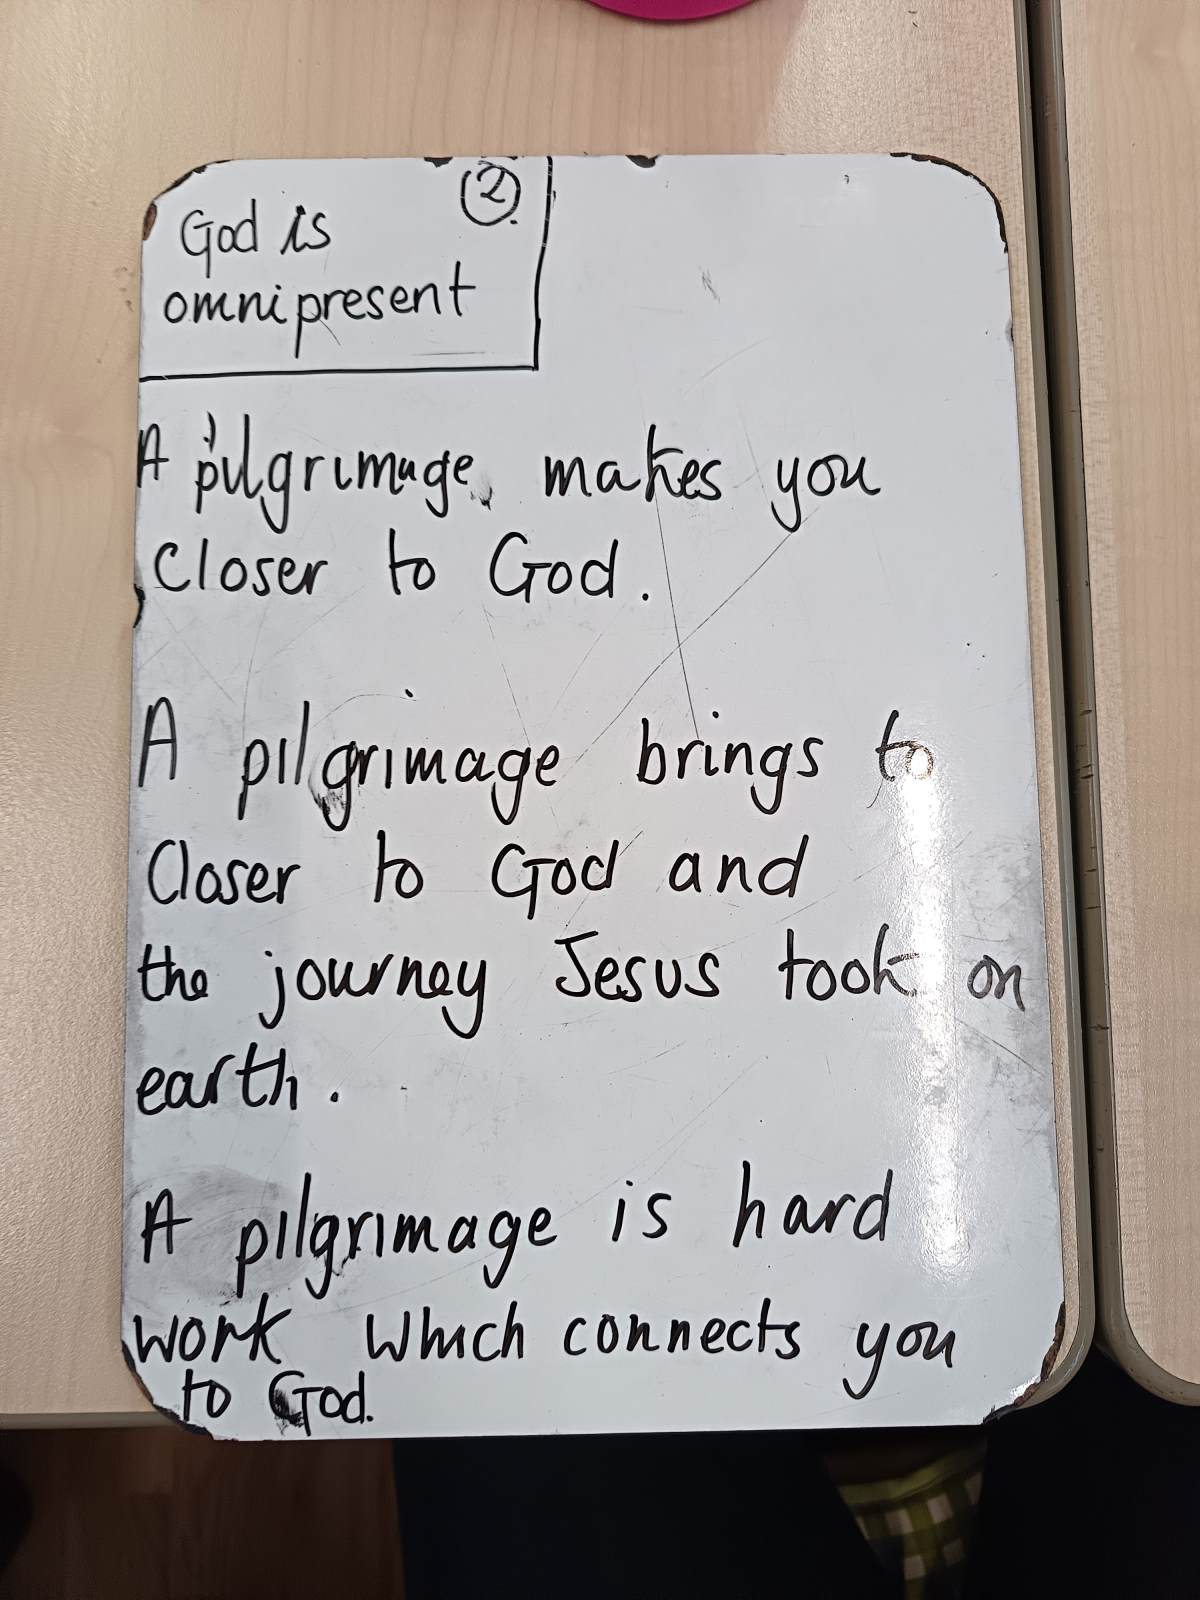 God is
②
omnipresent
A pilgrimage makes you
closer to God.
A pilgrimage brings to
Closer to God and
the journey Jesus took on
earth.
A pilgrimage is hard
work which connects you
to God.